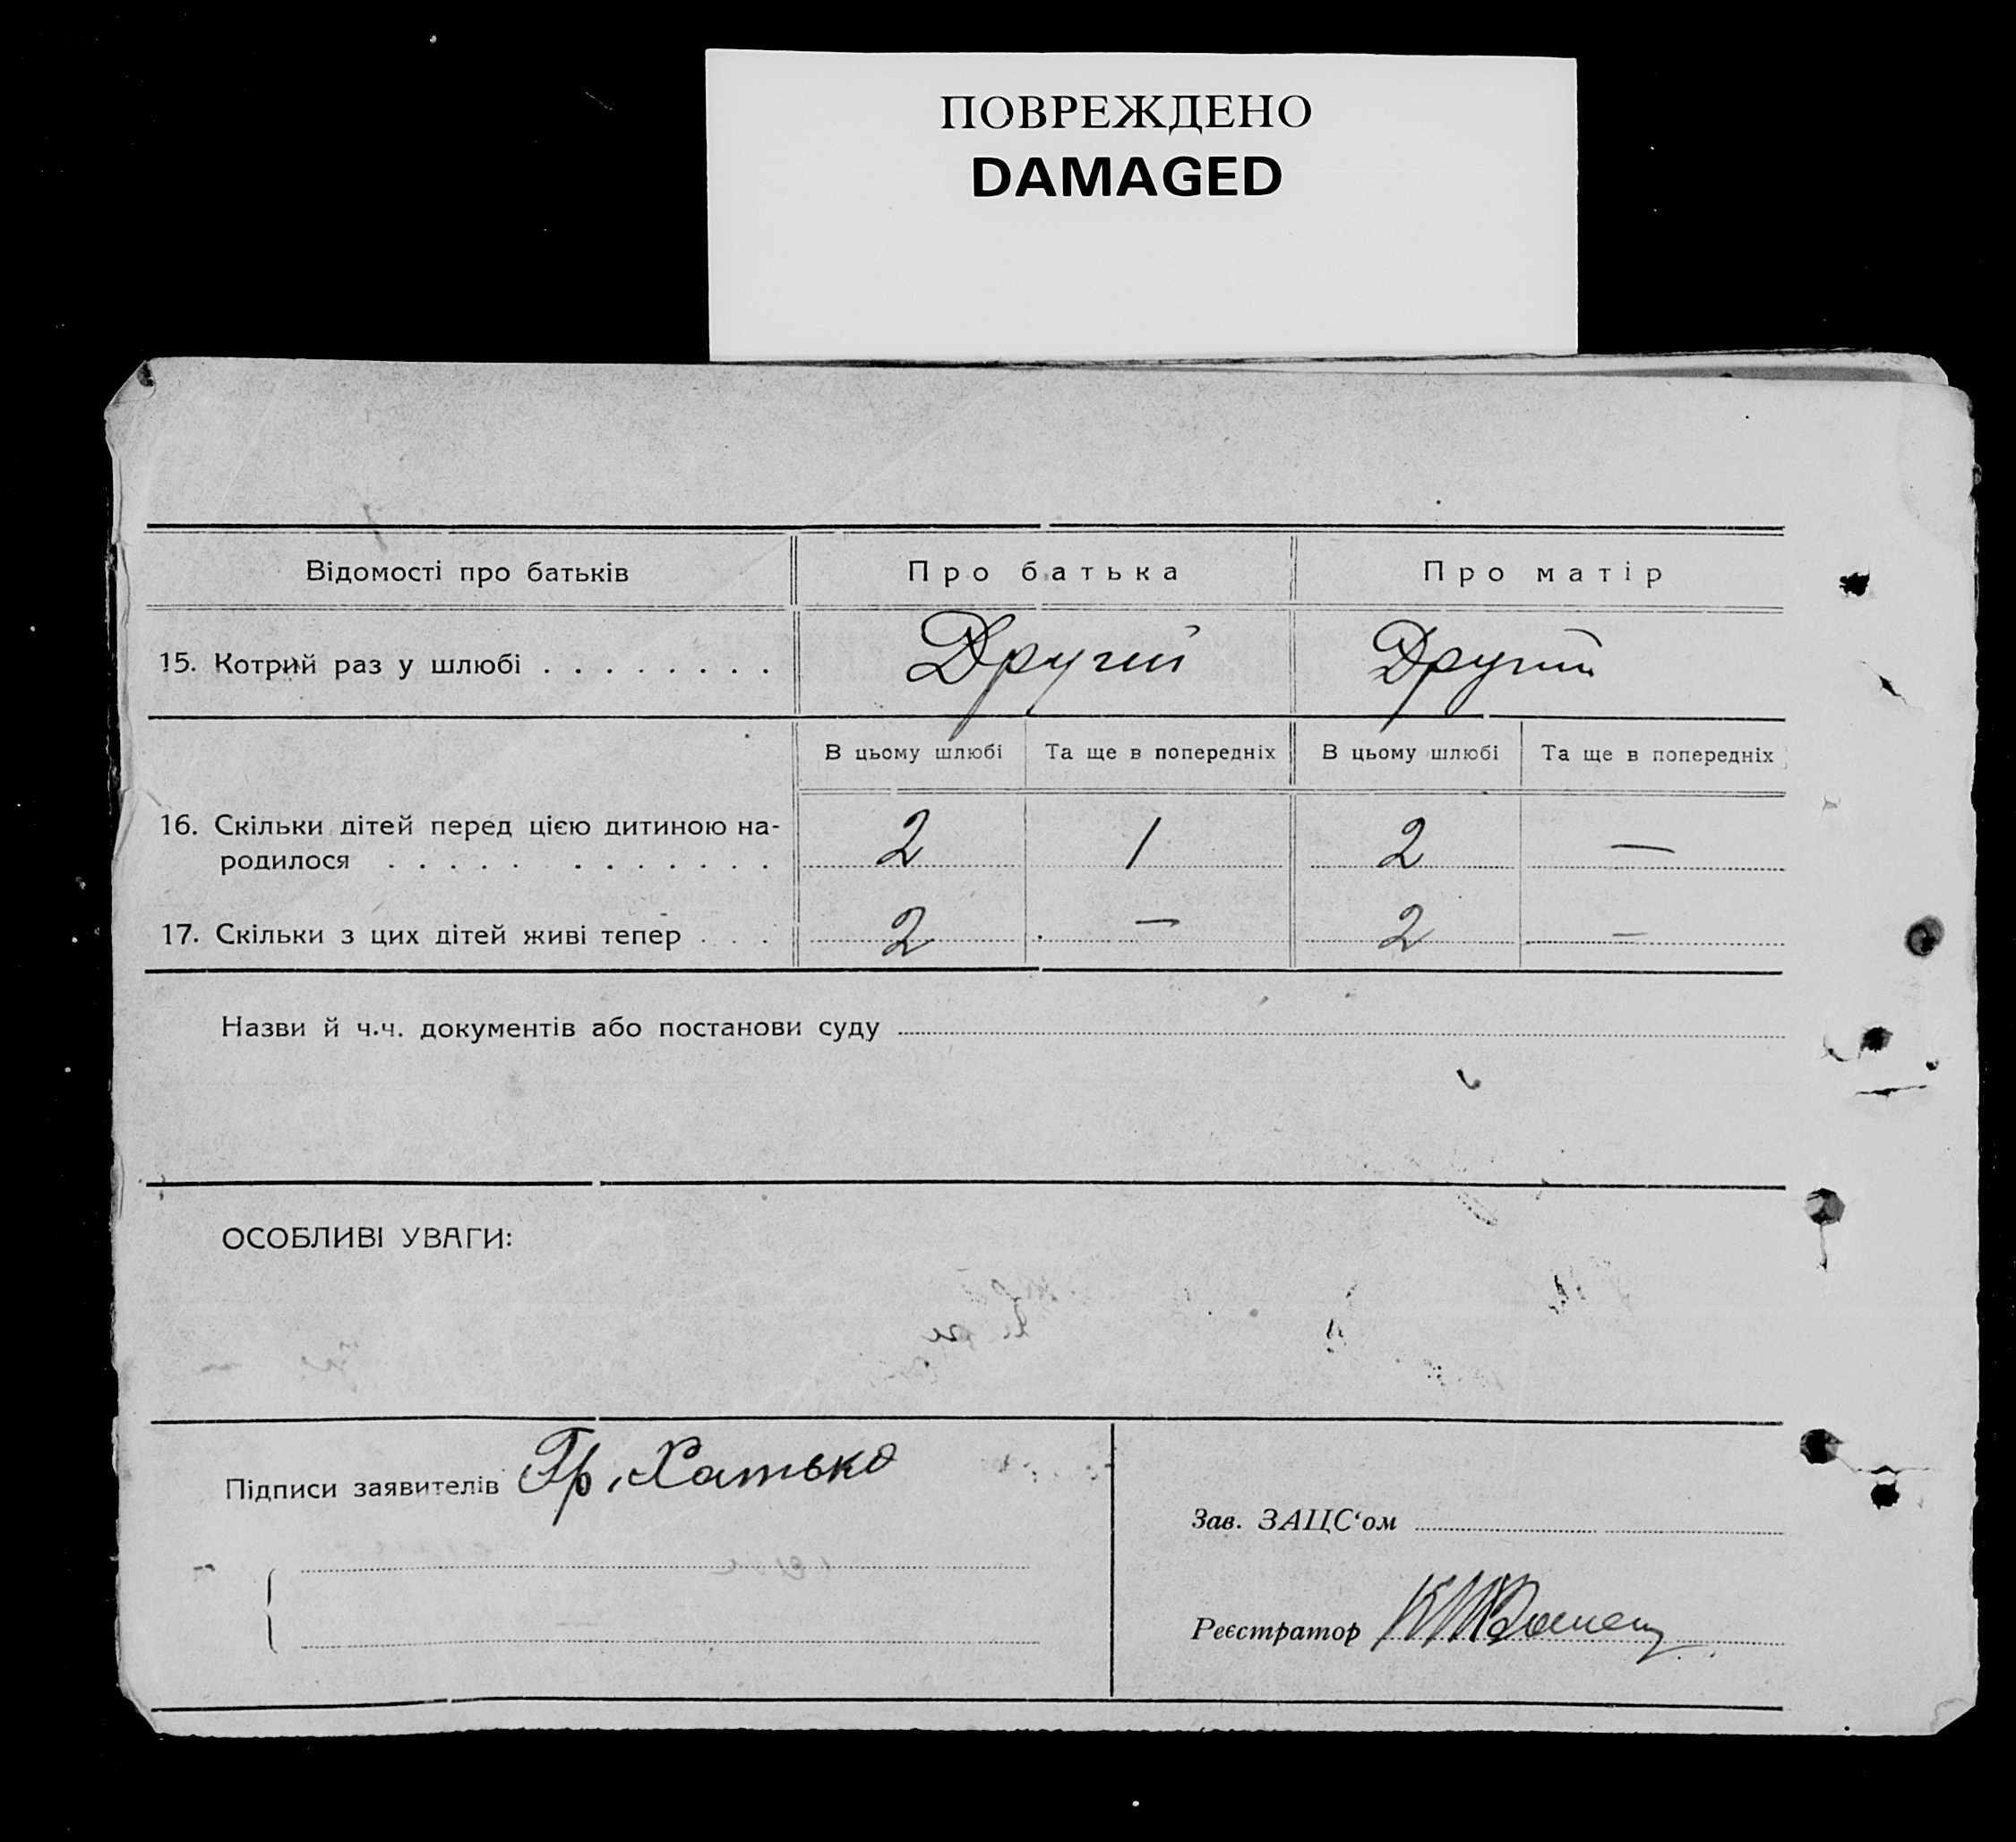 ПОВРЕЖДЕНО
DAMAGED
Відомості про батьків Про батька Про матір
15. Котрий раз у шлюбі . . . . . . . . Другий Другий
В цьому шлюбі Та ще в попередніх В цьому шлюбі Та ще в попередніх
16. Скільки дітей перед цією дитиною на-
родилося . . . . . . . . . . . 2 1 2 —
17. Скільки з цих дітей живі тепер . . . 2 — 2 —
Назви й ч.ч. документів або постанови суду
ОСОБЛИВІ УВАГИ:
Підписи заявителів Гр. Хатько
Зав. ЗАЦС‘ом
Реєстратор